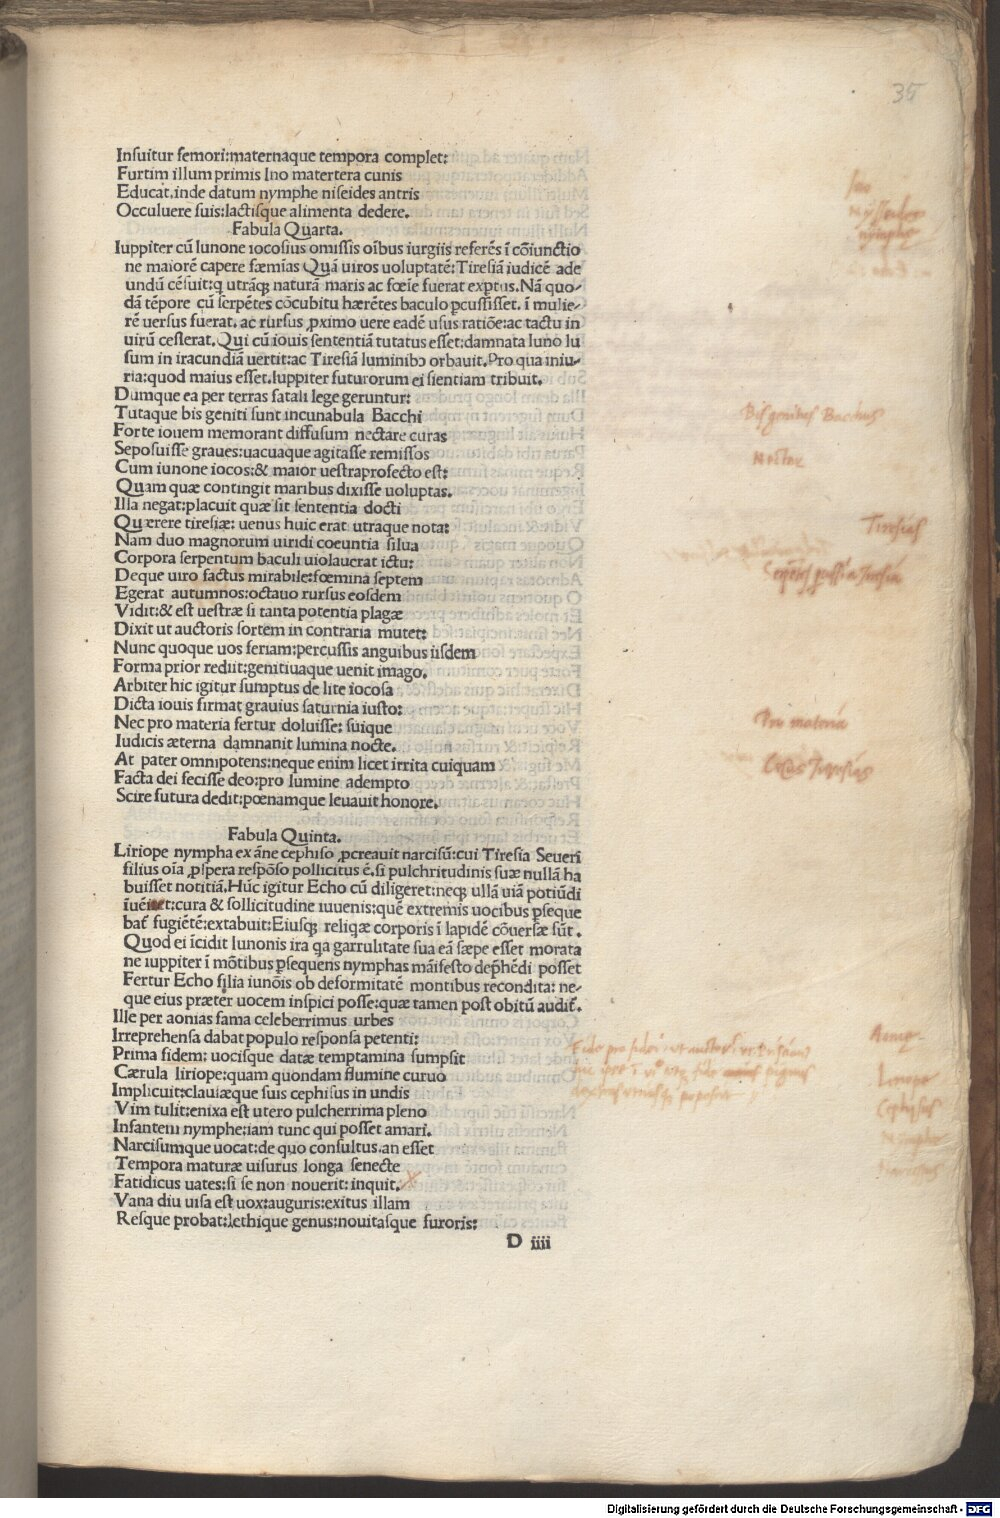 35
Insuitur femori:maternaque tempora complet:
Furtim illum primis Ino matertera cunis
Educat.inde datum nymphe niseides antris
Occuluere suis:lactisque alimenta dedere.
Fabula Quarta.
Iuppiter cũ Iunone iocosius omissis oĩbus iurgiis referẽs ĩ cõiunctio
ne maiorẽ capere fæmĩas Quã uiros uoluptatẽ:Tiresiã iudicẽ ade
undũ cẽsuit:q utrãq; naturã maris ac fœĩe fuerat exptus.Nã quo-
dã tẽpore cũ serpẽtes cõcubitu hærẽtes baculo pcussisset. ĩ mulie-
rẽ uersus fuerat. ac rursus pximo uere eadẽ usus ratiõe:ac tactu in
uirũ cesserat.Qui cũ iouis sententiã tutatus esset:damnata Iuno lu
sum in iracundiã uertit:ac Tiresiã luminibo orbauit.Pro qua iniu-
ria:quod maius esset.Iuppiter futurorum ei sientiam tribuit.
Dumque ea per terras fatali lege geruntur:
Tutaque bis geniti sunt incunabula Bacchi
Forte iouem memorant diffusum nectare curas
Seposuisse graues:uacuaque agitasse remissos
Cum iunone iocos:& maior uestraprofecto est:
Quam quæ contingit maribus dixisse uoluptas.
Illa negat:placuit quæ sit sententia docti
Quærere tiresiæ: uenus huic erat utraque nota:
Nam duo magnorum uiridi coeuntia silua
Corpora serpentum baculi uiolauerat ictu:
Deque uiro factus mirabile:fœmina septem
Egerat autumnos:octauo rursus eosdem
Vidit:& est uestræ si tanta potentia plagæ
Dixit ut auctoris sortem in contraria mutet:
Nunc quoque uos feriam:percussis anguibus iisdem
Forma prior rediit:genitiuaque uenit imago.
Arbiter hic igitur sumptus de lite iocosa
Dicta iouis firmat grauius saturnia iusto:
Nec pro materia fertur doluisse: suique
Iudicis æterna damnanit lumina nocte.
At pater omnipotens:neque enim licet irrita cuiquam
Facta dei fecisse deo:pro lumine adempto
Scire futura dedit:pœnamque leuauit honore.
Fabula Quinta.
Liriope nympha ex ãne cephiso pcreauit narcisũ:cui Tiresia Seueri
filius oĩa pspera respõso pollicitus ẽ.si pulchritudinis suæ nullã ha
buisset notitiã.Hũc igitur Echo cũ diligeret:neq; ullã uiã potiũdi
ĩuẽiret:cura & sollicitudine iuuenis:quẽ extremis uocibus pseque
bat fugiẽtẽ:extabuit:Eiusq; reliqæ corporis ĩ lapidẽ cõuersæ sũt.
Quod ei ĩcidit Iunonis ira qa garrulitate sua eã sæpe esset morata
ne iuppiter ĩ mõtibus psequens nymphas mãifesto dephẽdi posset
Fertur Echo filia iunõis ob deformitatẽ montibus recondita: ne-
que eius præter uocem inspici posse:quæ tamen post obitũ audit.
Ille per aonias fama celeberrimus urbes
Irreprehensa dabat populo responsa petenti:
Prima fidem: uocisque datæ temptamina sumpsit
Cærula liriope:quam quondam flumine curuo
Implicuit:clauiæque suis cephisus in undis
Vim tulit:enixa est utero pulcherrima pleno
Infantem nymphe:iam tunc qui posset amari.
Narcisumque uocat:de quo consultus.an esset
Tempora maturæ uisurus longa senecte
Fatidicus uates:si se non nouerit: inquit.
Vana diu uisa est uox:auguris:exitus illam
Resque probat:lethique genus:nouitasque furoris:
D iiii
Ino
nymphe
Bis genitus Bacchus
Nectar
Tiresias
Pro materia
Cecus Tiresias
Liriope
Cephisus
Nympha
Narcissus
Digitalisierung gefördert durch die Deutsche Forschungsgemeinschaft - DFG